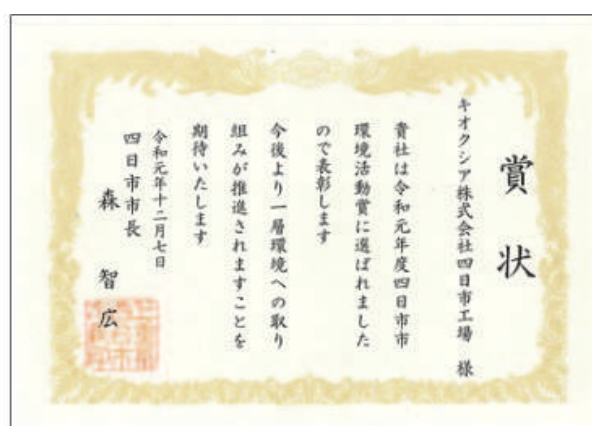 賞状
キオクシア株式会社四日市工場 様
貴社は令和元年度四日市市
環境活動賞に選ばれました
ので表彰します
今後より一層環境への取り
組みが推進されますことを
期待いたします
令和元年十二月七日
四日市市長
森 智広